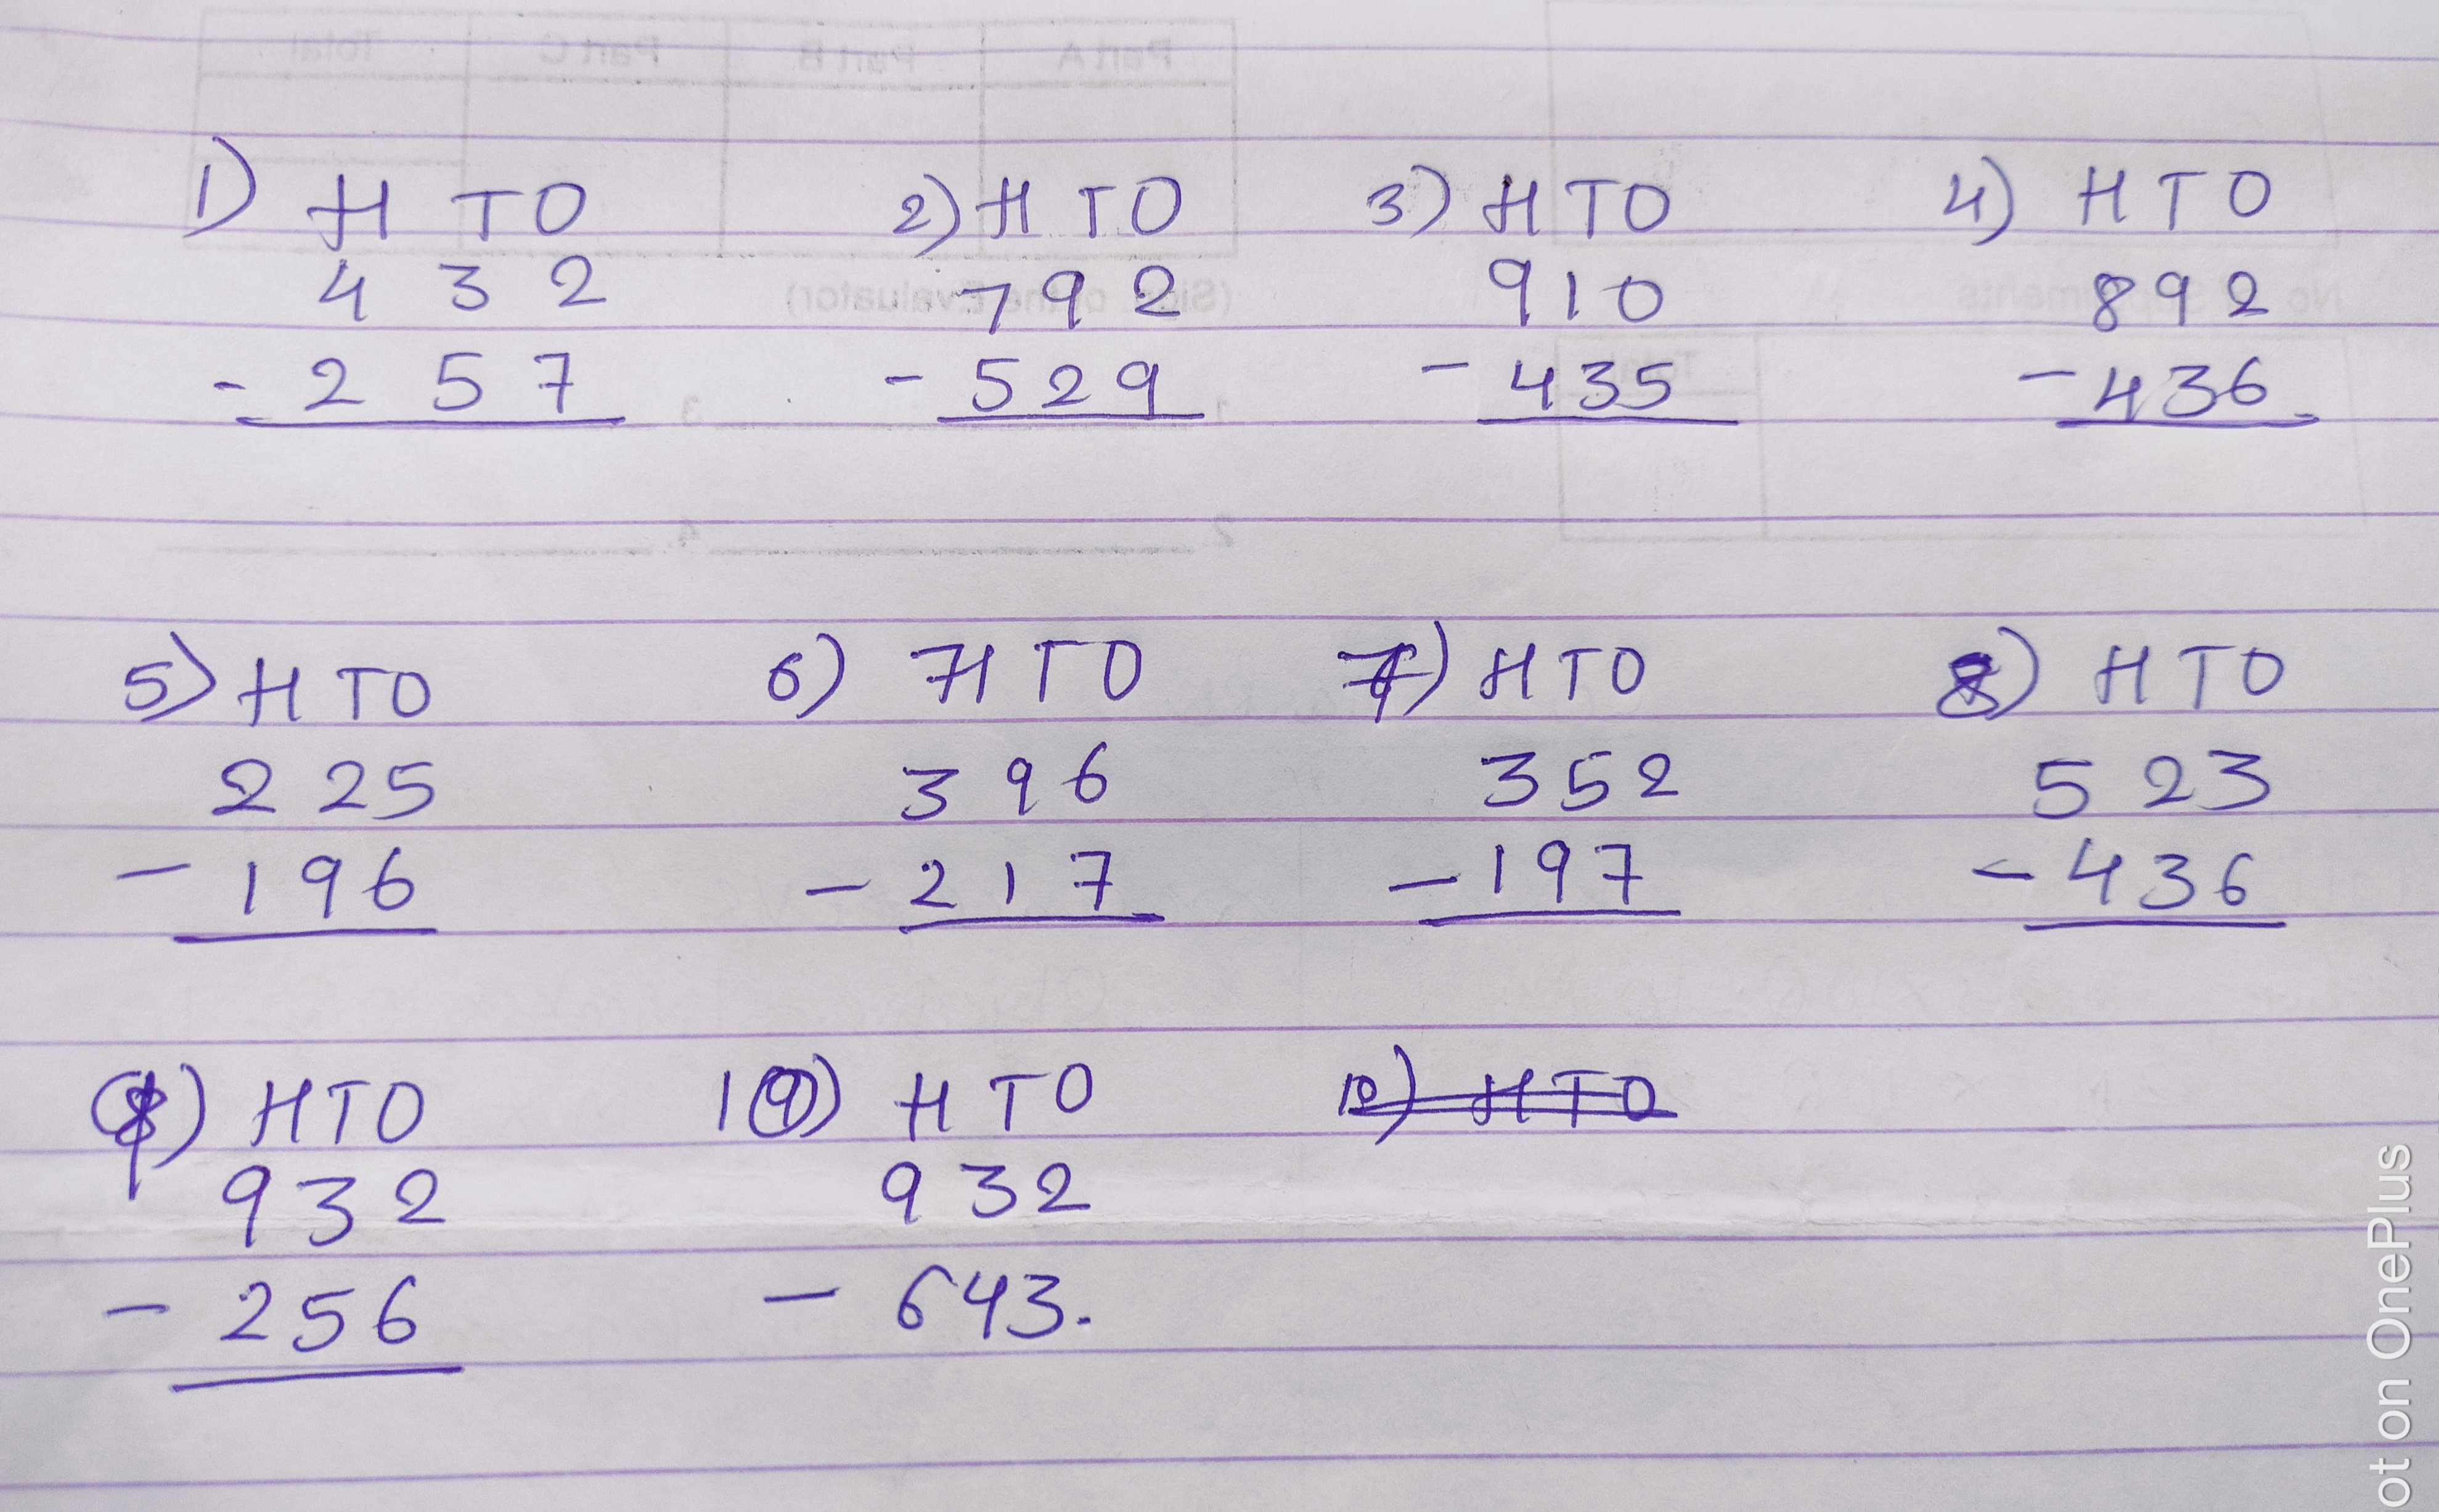 1) H T O 2) H T O 3) H T O 4) H T O
4 3 2 7 9 2 9 1 0 8 9 2
- 2 5 7 - 5 2 9 - 4 3 5 - 4 3 6
5) H T O 6) H T O 7) H T O 8) H T O
2 2 5 3 9 6 3 5 2 5 2 3
- 1 9 6 - 2 1 7 - 1 9 7 - 4 3 6
9) H T O 10) H T O
9 3 2 9 3 2
- 2 5 6 - 6 4 3.
Part A Part B Part C Total
(Sign. of the Evaluator)
1. 3
2. 4.
ot on OnePlus